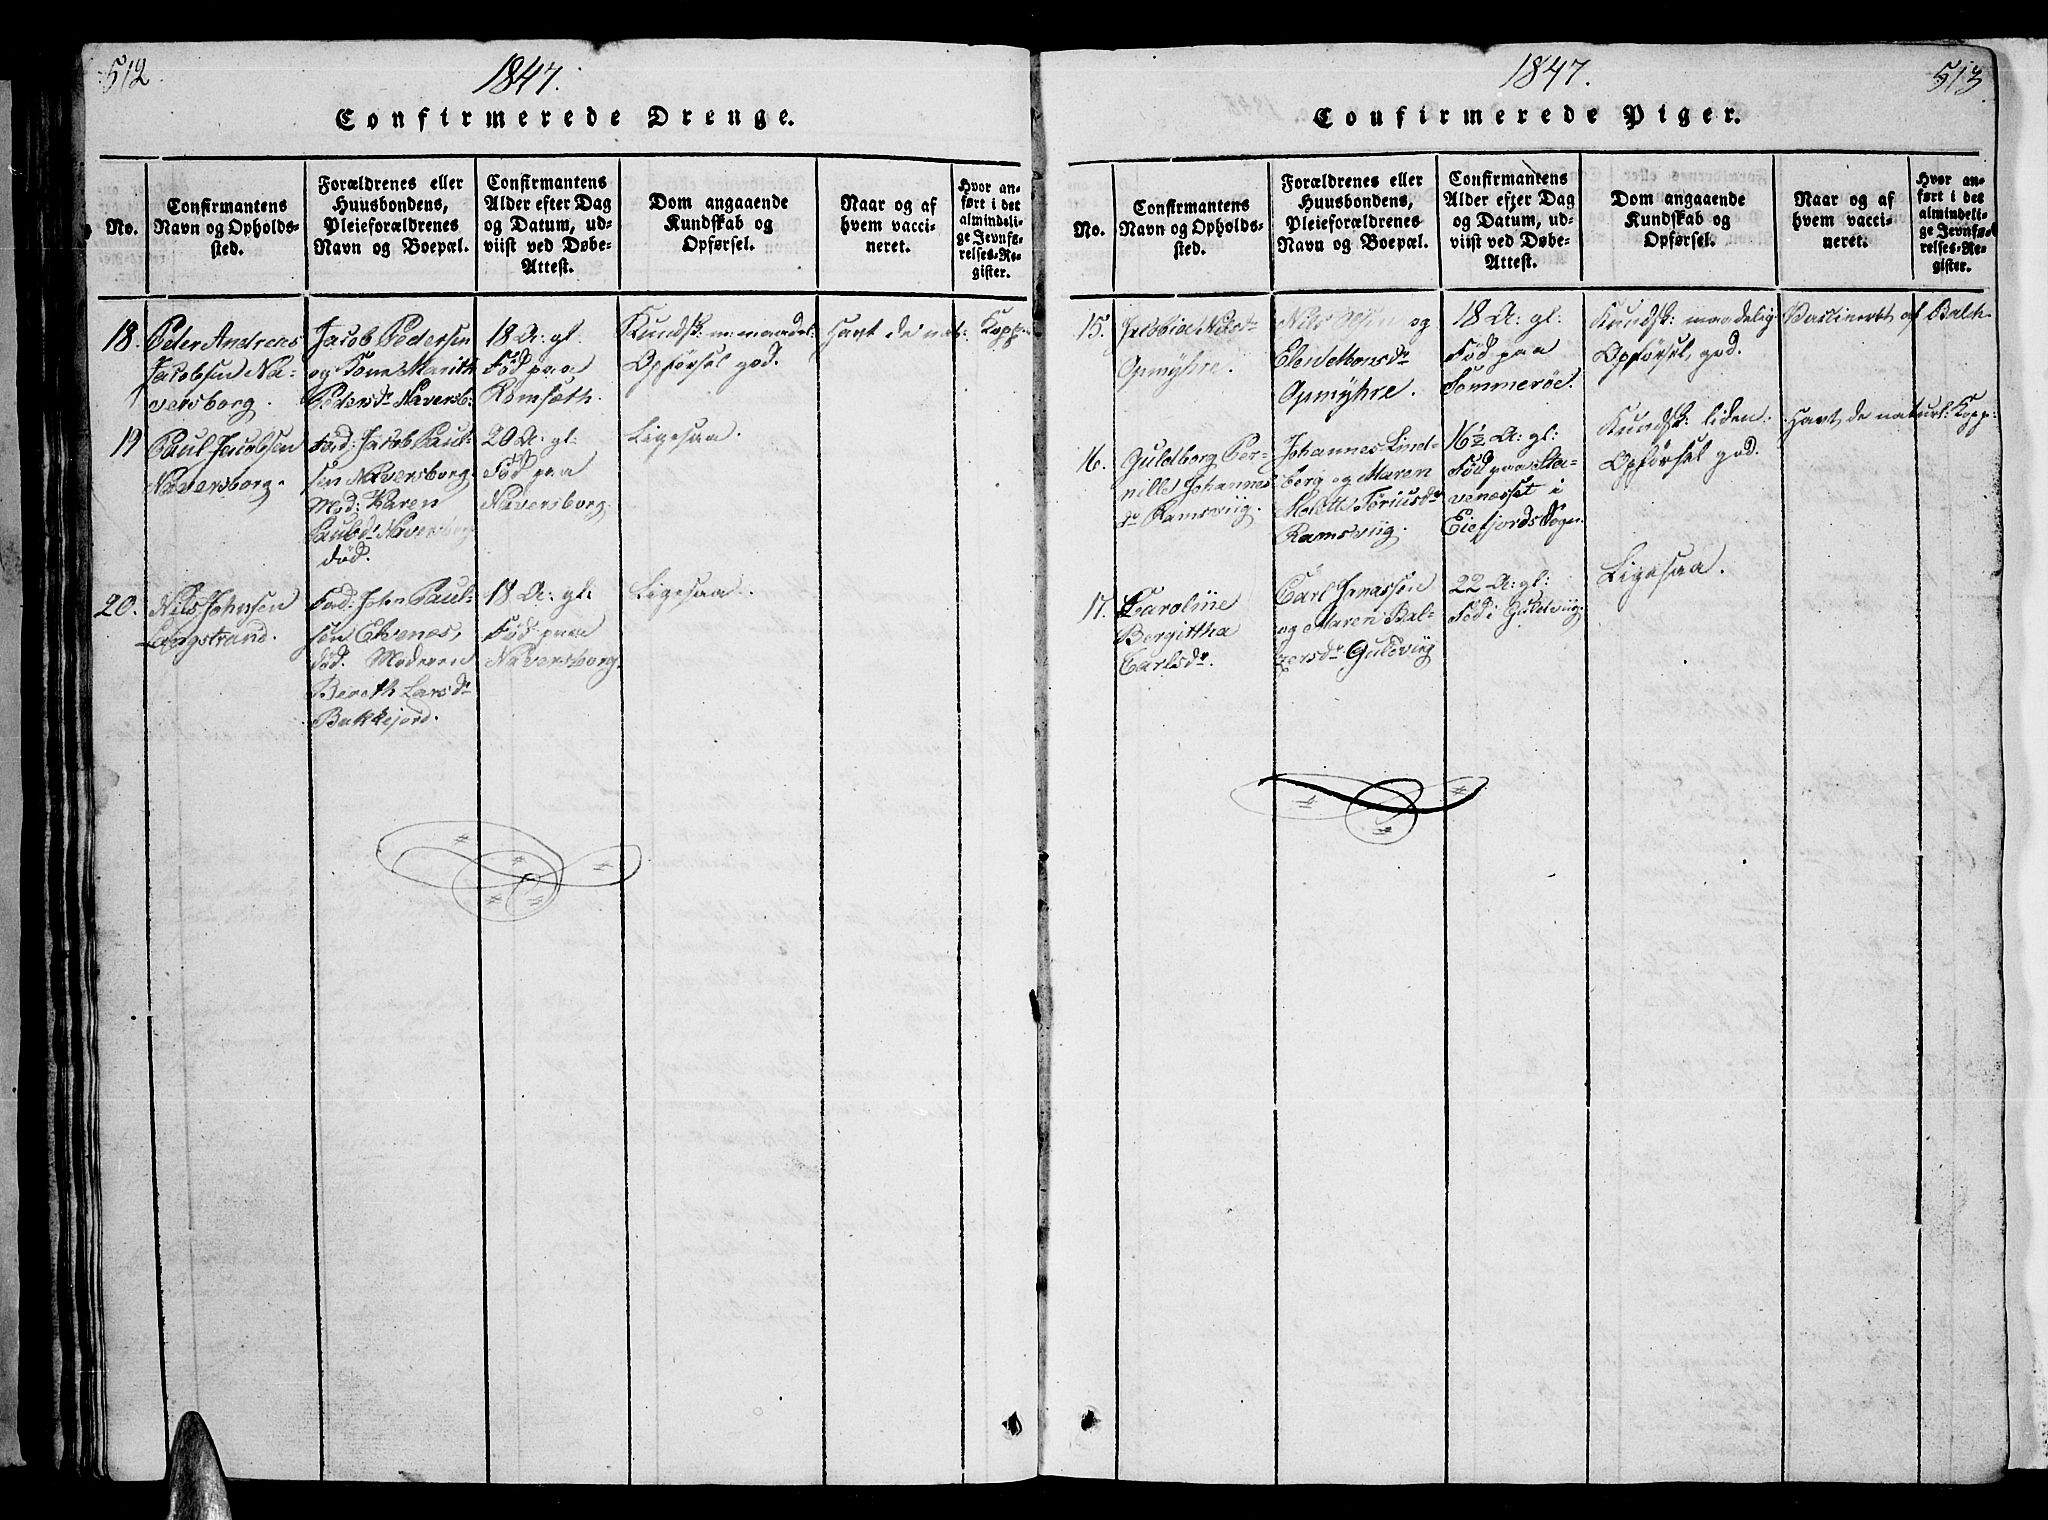 512
1847.
Confirmerede Drenge.
No.
Confirmantens
Navn og Opholds-
sted.
Forældrenes eller
Huusbondens,
Pleieforældrenes
Navn og Boepæl.
Confirmantens
Alder efter Dag
og Datum, ud-
viist ved Døbe-
Attest.
Dom angaaende
Kundskab og
Opførsel.
Naar og af
hvem vacci-
neret.
Hvor an-
ført i det
almindeli-
ge Jevnfø-
relses-Re-
gister.
18.
Peter Andreas
Jacobsen Na-
versborg.
Jacob Pedersen
og Marith
Pedersdr Naversb:
18 A: gl.
Fød paa
Romsæth.
Kundsk: m: maadel:
Opførsel god.
Havt de nat: Kopp:
19
Paul Jacobsen
Naversborg.
Fad: Jacob Paul-
sen Naversborg
Mod: Karen
Paulsdr Naversborg
død.
20 A: gl:
Fød paa
Naversborg.
Ligesaa.
20.
Nils Johnsen
Langstrand.
Fad: John Paul-
sen Elvenæs,
død. Moderen
Bereth Larsdr
Bakkejord.
18 A: gl:
Fød paa
Naversborg.
Ligesaa.
1847.
513.
Confirmerede Piger.
No.
Confirmantens
Navn og Opholds-
sted.
Forældrenes eller
Huusbondens,
Pleieforældrenes
Navn og Boepæl.
Confirmantens
Alder efter Dag
og Datum, ud-
viist ved Døbe-
Attest.
Dom angaaende
Kundskab og
Opførsel.
Naar og af
hvem vacci-
neret.
Hvor an-
ført i det
almindeli-
ge Jevnfø-
relses-Re-
gister.
15.
Nilsd:
Opmyhre.
Nils og
Elen Monsdr
Opmyhre.
18 A: gl:
Fød paa
Sommerøe.
Kundsk: maadelig
Opførsel, god.
Vaccineret af Balch.
16.
Guldborg Per-
nille Johannes-
dr Ramsviig.
Johannes Lind-
berg og Maren
Toriusdr
Ramsviig.
16½ A: gl:
Fød paa Sta-
venæsset i
Eiefjords Sogn.
Kundsk: liden.
Opførsel god.
Havt de naturl: Kopp:
17.
Caroline
Bergittha
Carlsdr.
Carl Jonassen
og Maren Bal-
zersdr Guldviig
22 A: gl:
Fød i Guldviig.
Ligesaa.